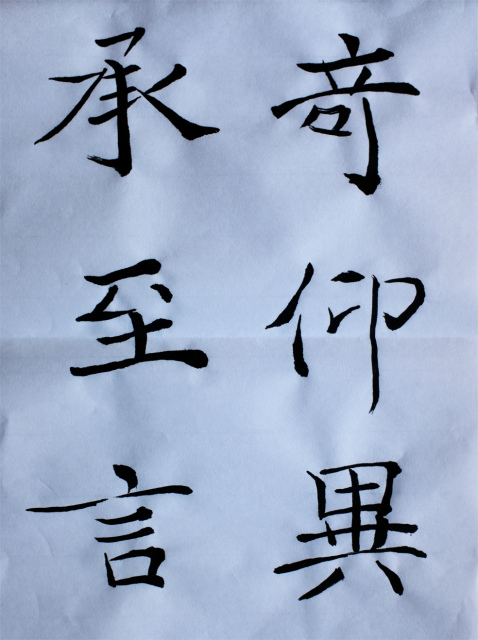 竒仰異
承至言